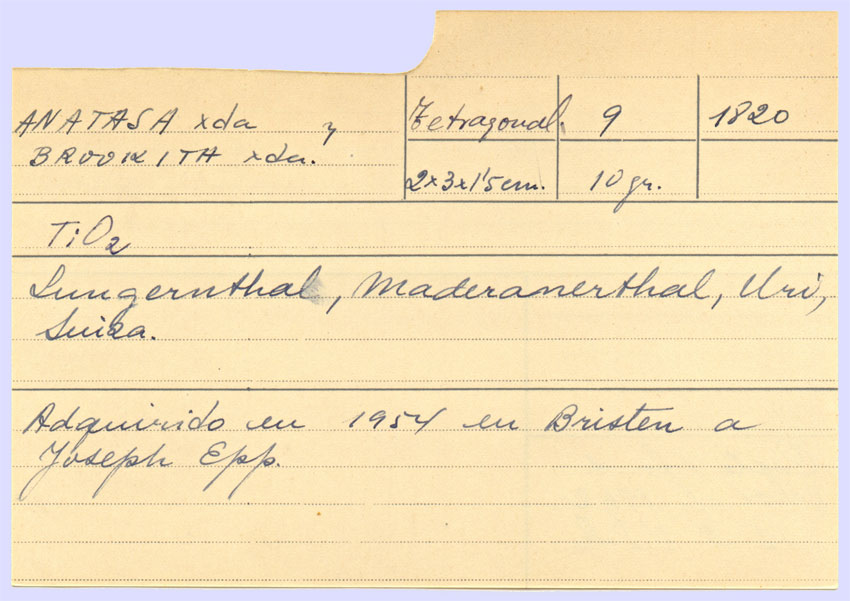 ANATASA xda y
BROOKITA xda.
Tetragonal.
9
1820
2x3x1'5 cm.
10 gr.
TiO2
Lungernthal, Maderanerthal, Uri,
Suiza.
Adquirido en 1954 en Bristen a
Joseph Epp.